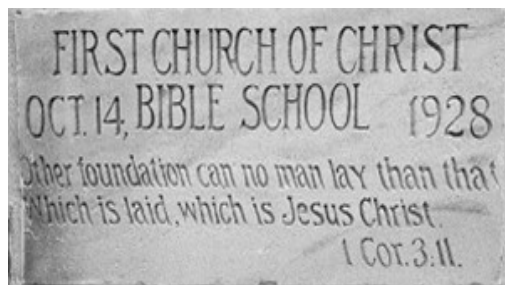 FIRST CHURCH OF CHRIST
OCT. 14, BIBLE SCHOOL 1928
Other foundation can no man lay than that
Which is laid, which is Jesus Christ.
1 Cor. 3:11.